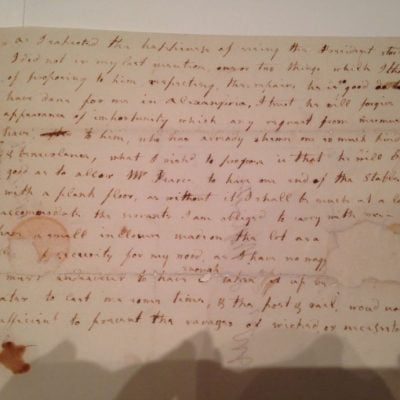 as I expected the happiness of seeing the President
I did not in my last mention, one or two things which I
of proposing to him, respecting, the repairs he is good
have done for me in Alexandria, I trust he will forgive
appearance of importunity which my
have to him, who has already shewn me so much kind
& benevolence, what I wish to propose is that he will be
good as to allow Mr Pearce to have one end of the Stable
with a plank floor, as without it I shall be much at a lo
accommodate the servants I am obliged to carry with me
have a small inclosure made on the lot as a
security for my wood, as I have no
must endeavour to have enough taken up
to last me some time, & the post & rail, woud no
sufficient to prevent the ravages of wicked or necessi